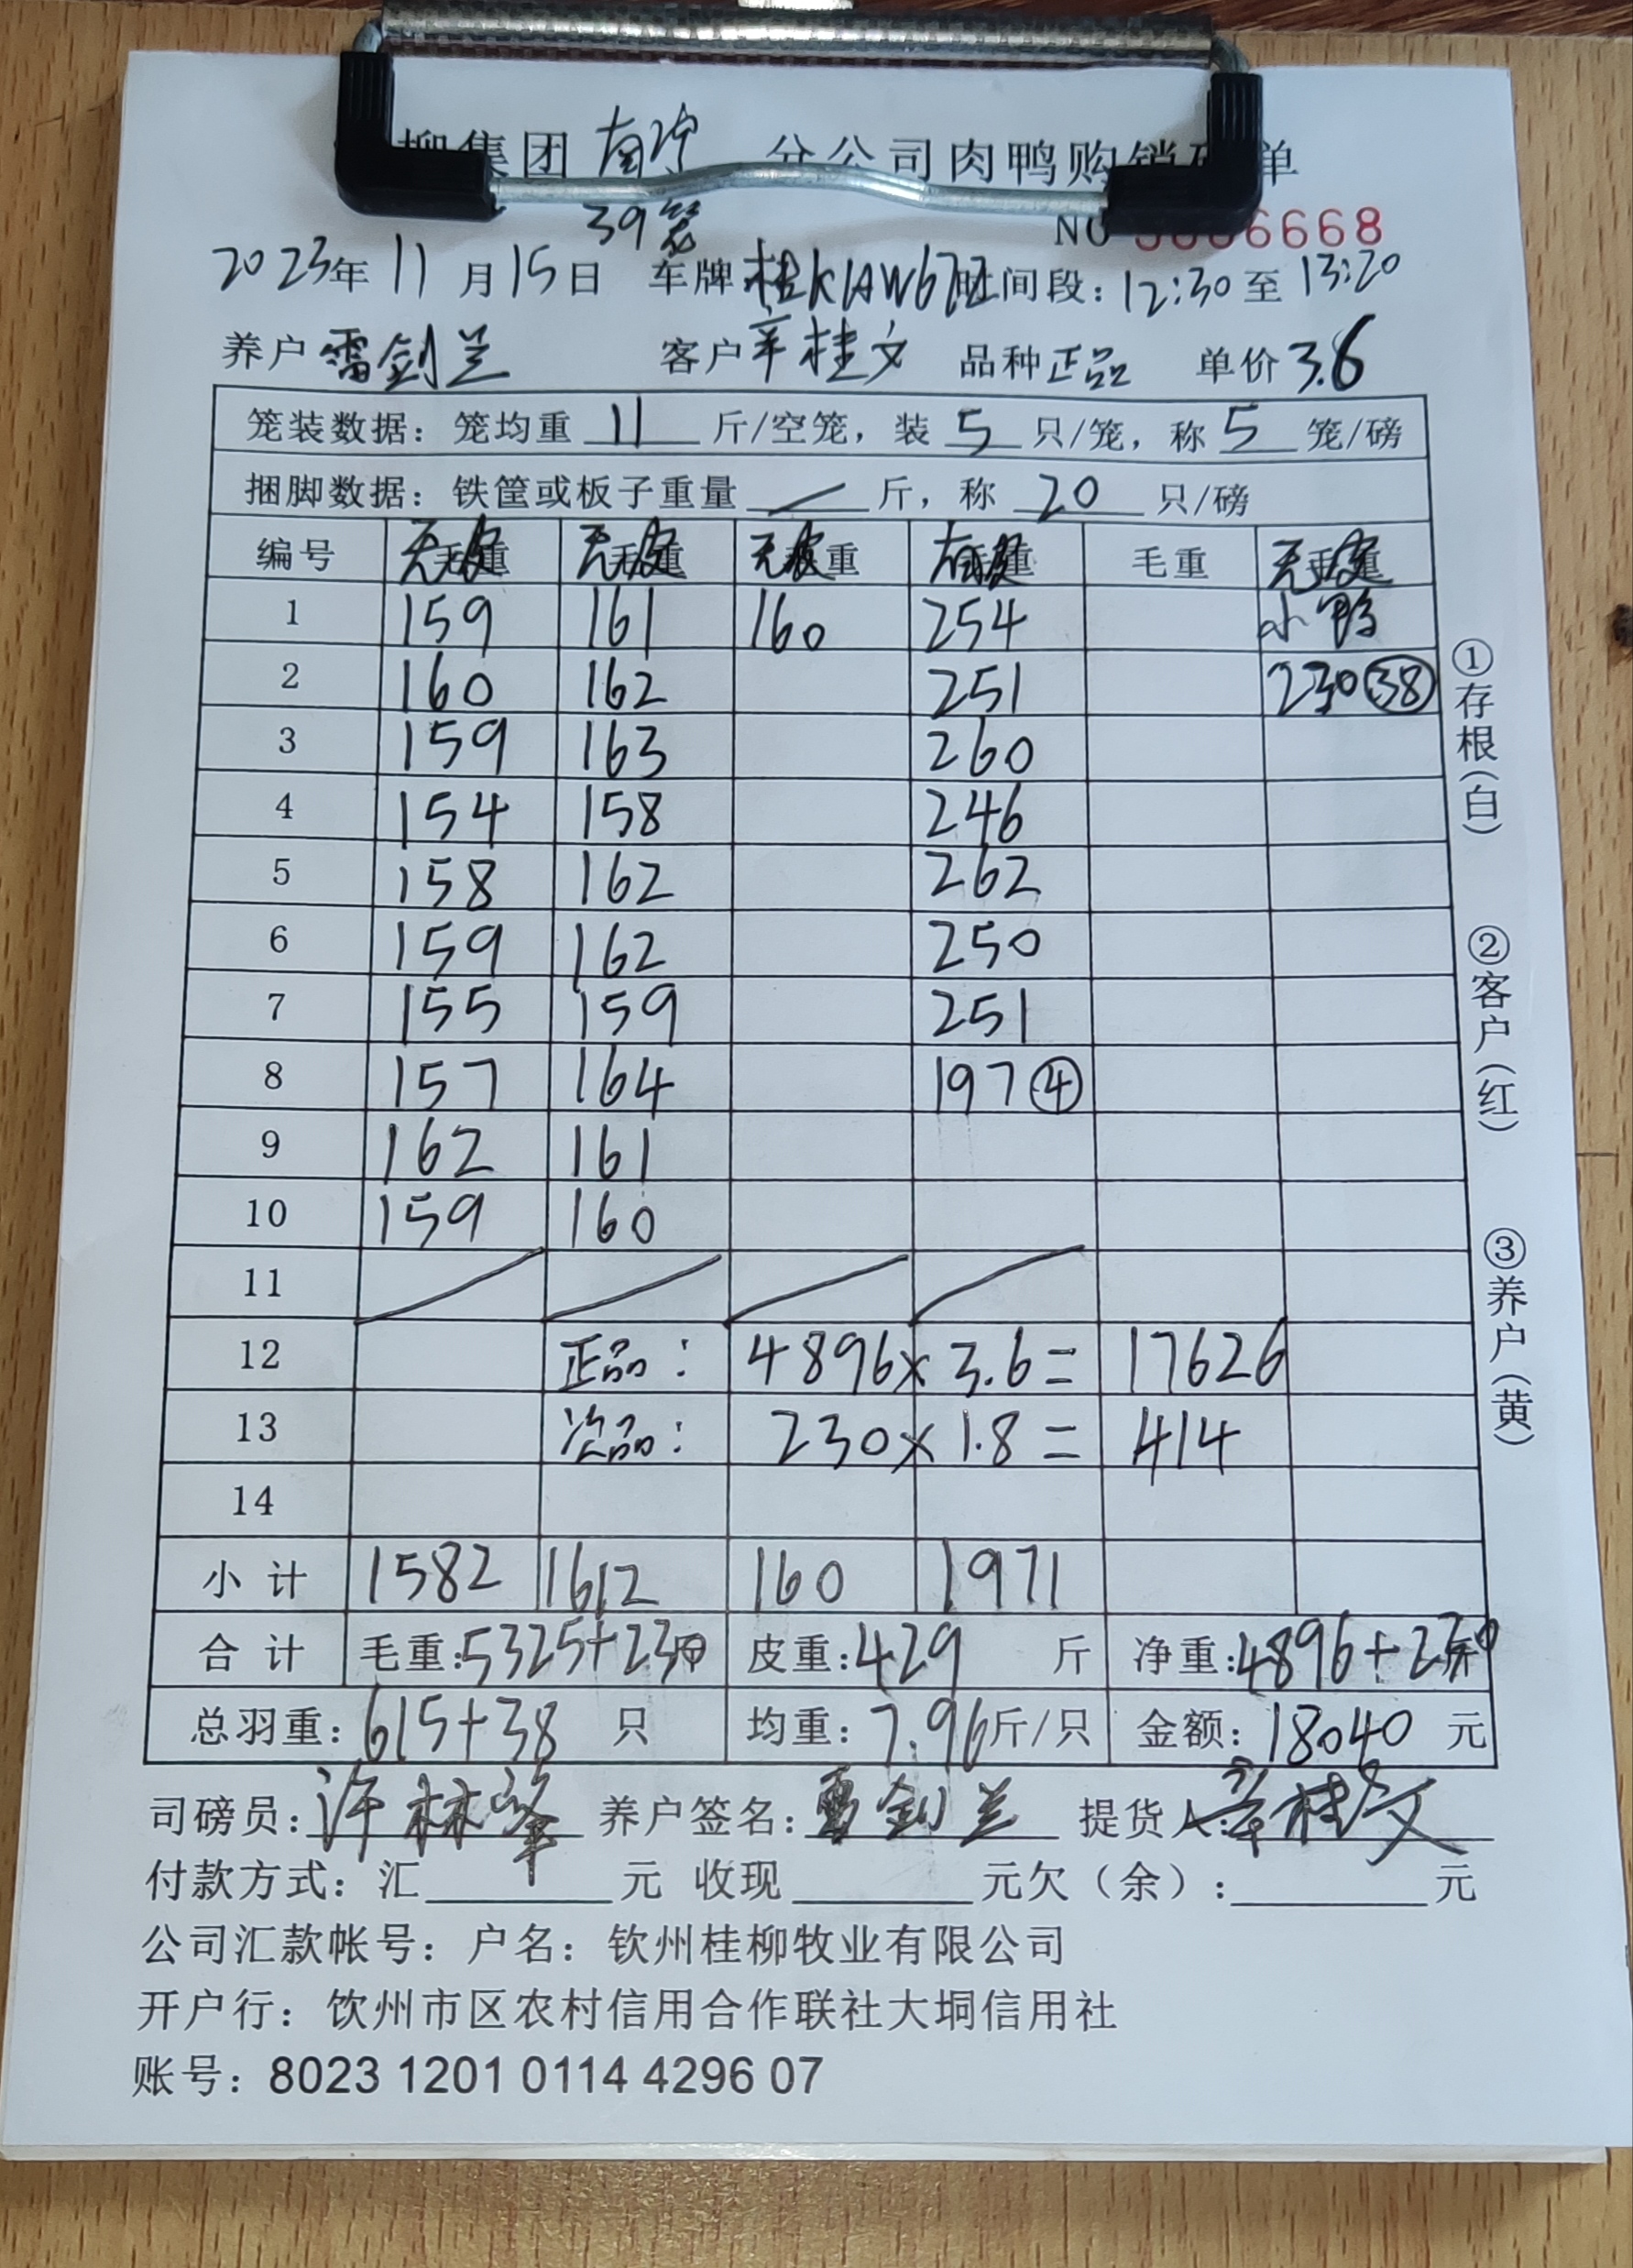 柳集团 南宁 分公司肉鸭购销 单
39笼
NO 6668
2023年 11 月 15 日 车牌:桂KAW672 时间段: 12:30 至 13:20
养户 雷剑兰 客户 辛桂文 品种 正品 单价 3.6
笼装数据: 笼均重 11 斤/空笼, 装 5 只/笼, 称 5 笼/磅
捆脚数据: 铁筐或板子重量 / 斤, 称 20 只/磅
编号 无皮 无皮 无皮 有皮 毛重 无皮
1 159 161 160 254 小鸭
2 160 162 251 230 38
3 159 163 260
4 154 158 246
5 158 162 262
6 159 162 250
7 155 159 251
8 157 164 197 ④
9 162 161
10 159 160
11
12 正品: 4896 × 3.6 = 17626
13 次品: 230 × 1.8 = 414
14
小计 1582 1612 160 1971
合计 毛重:5325+230 皮重:429 斤 净重:4896+230
总羽重: 615+38 只 均重: 7.96斤/只 金额: 18040 元
司磅员: 许林峰 养户签名: 雷剑兰 提货人: 辛桂文
付款方式: 汇 元 收现 元欠(余): 元
公司汇款帐号: 户名: 钦州桂柳牧业有限公司
开户行: 饮州市区农村信用合作联社大垌信用社
账号: 8023 1201 0114 4296 07
①存根(白)
②客户(红)
③养户(黄)